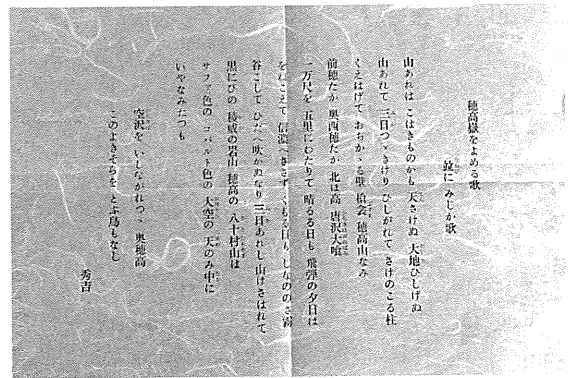 穂高嶽をよめる歌
並に みじか歌
山あれは こはきものかも 天さけぬ 大地ひしげぬ
山あれて 三日つゞきけり ひしがれて さけのこる柱
くえはげて おちかゝる壁 穂高山なみ
前穂たか 奥西穂たか 北は高 唐沢大喰
一万尺を 五里にわたりて 晴るる日も 飛弾の夕日は
をねこえて 信濃へささず くもる日も しなののさ霧
谷こして ひだへ吹かぬなり 三日あれし 山けさはれて
黒にびの 稜威の岩山 穂高の 八十村山は
サファ色の コバルト色の 大空の 天のみ中に
いやなみだつも
空沢を いしながれつゝ 奥穂高
このよきそらを とぶ鳥もなし
秀吉